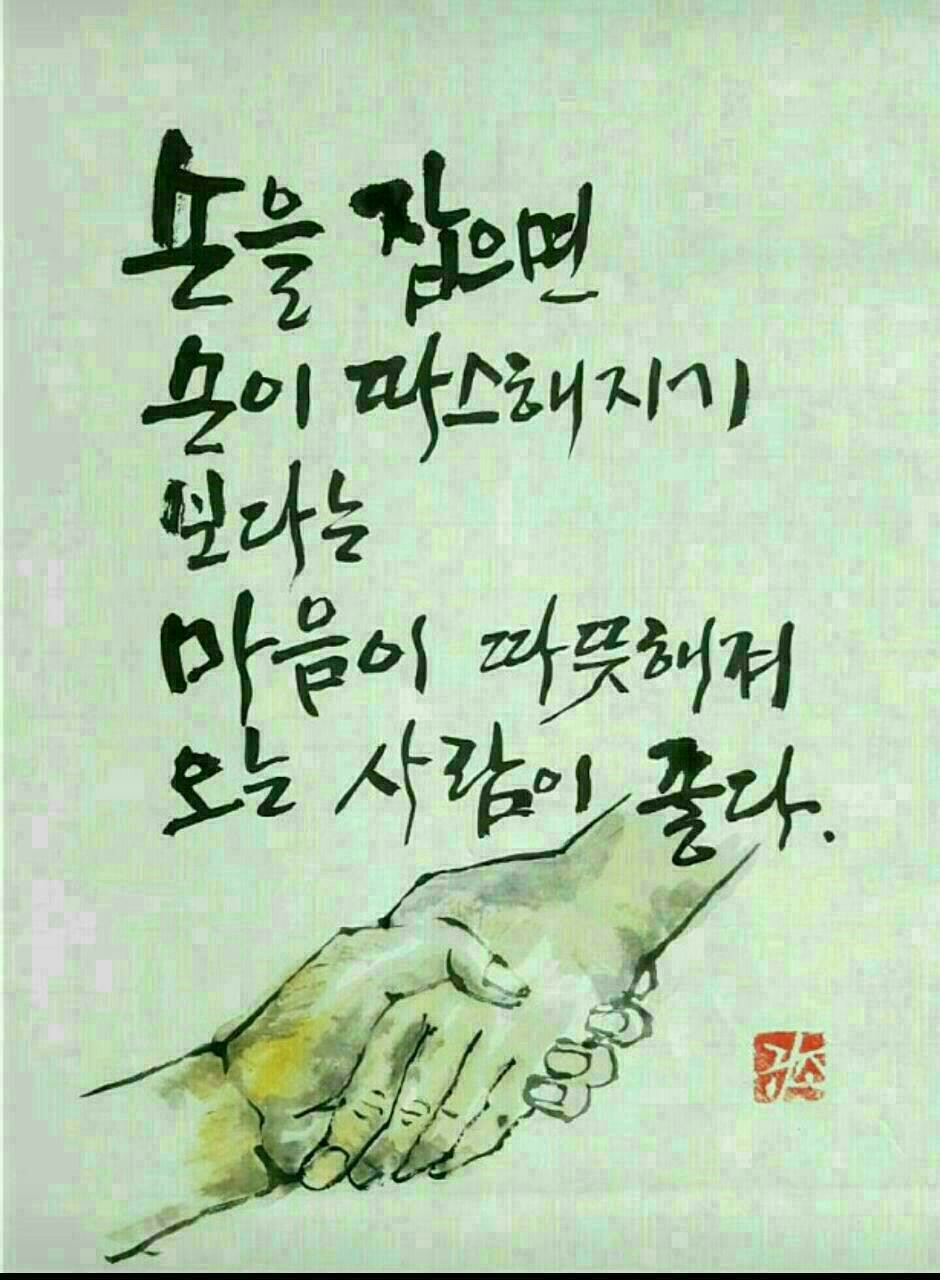 손을 잡으면
손이 딱스해지기
보다는
마음이 따뜻해져
오는 사람이 좋다.